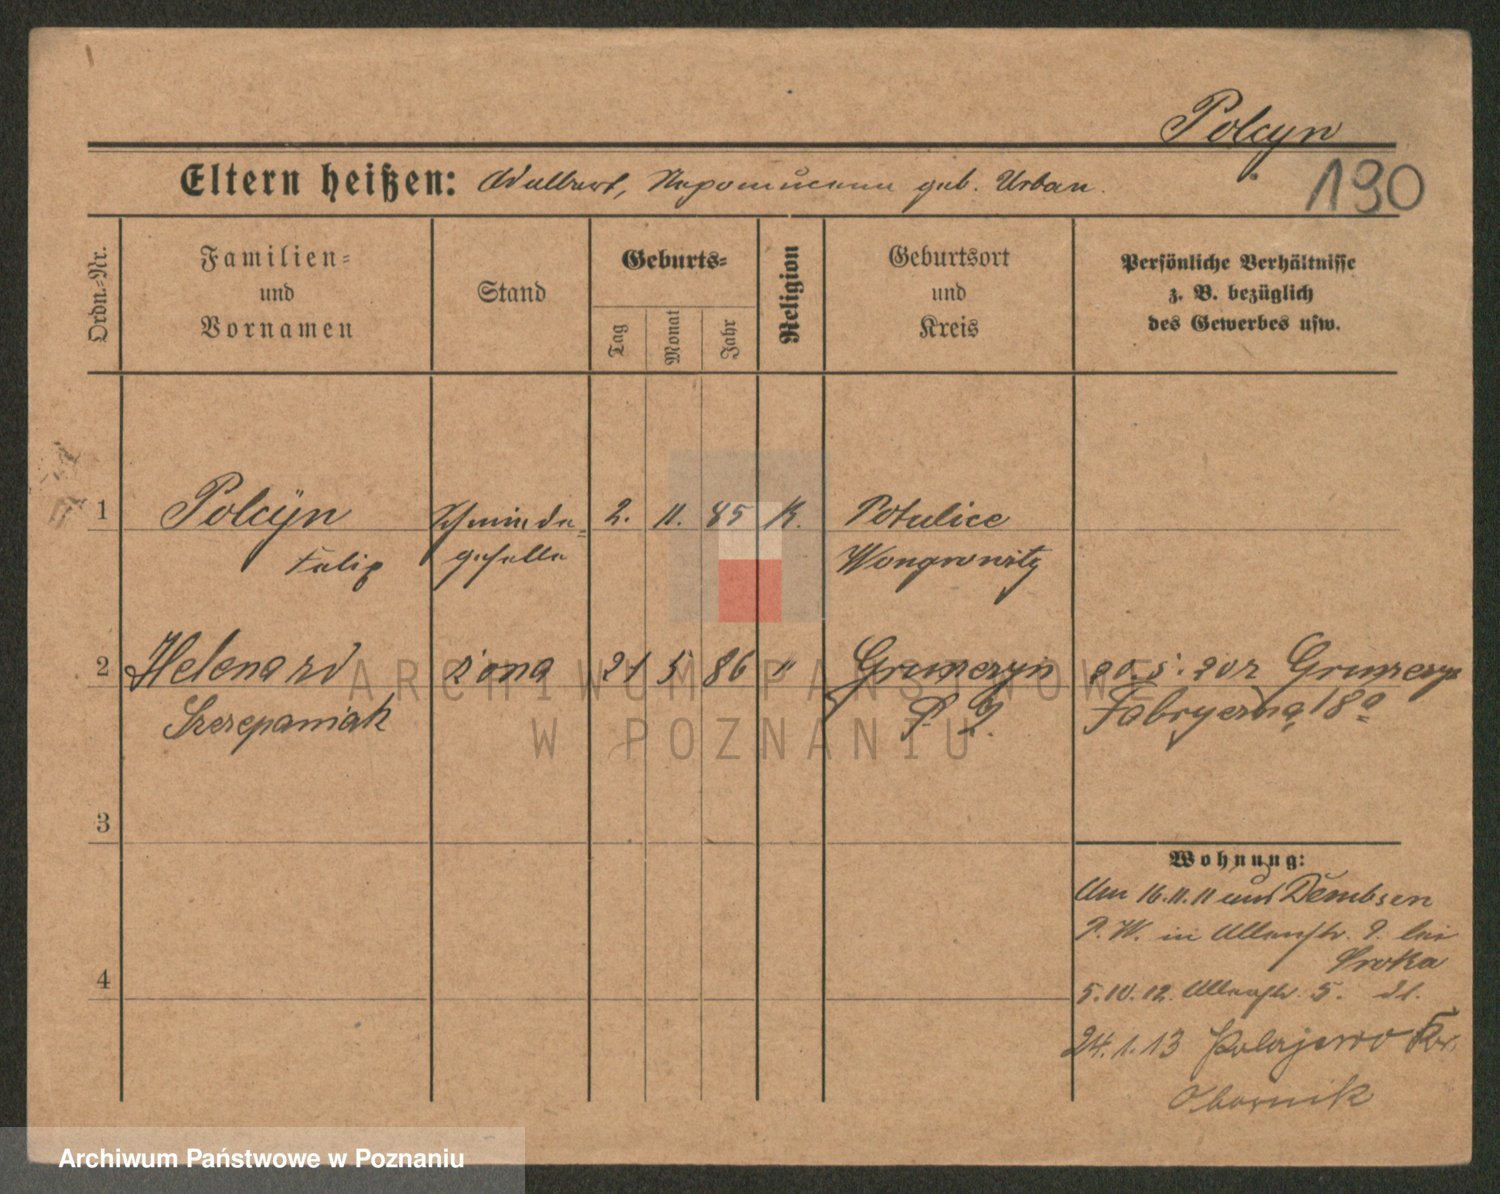 Polcyn
190
Eltern heißen: Adalbert, Nepomucena geb. Urban.
Ordn.-Nr.
Familien- und Vornamen
Stand
Geburts-
Tag
Monat
Jahr
Religion
Geburtsort und Kreis
Persönliche Verhältnisse z. B. bezüglich des Gewerbes usw.
1 Polcÿn Schmiede- 2. 11. 85 K. Potulice
Felix geselle Wongrowitz
2 Helena żona 21 5 86 " Grunczyn
Szczepaniak P. Fabryczna 18a
3
Wohnung:
Am 16.11.11 aus Dembsen
P. W. in Allerstr. 9. bei
Sroka
4
5.10.12. Allerstr. 5.
24.1.13 Polajewo Kr.
Obornik
ARCHIWUM PAŃSTWOWE
W POZNANIU
Archiwum Państwowe w Poznaniu